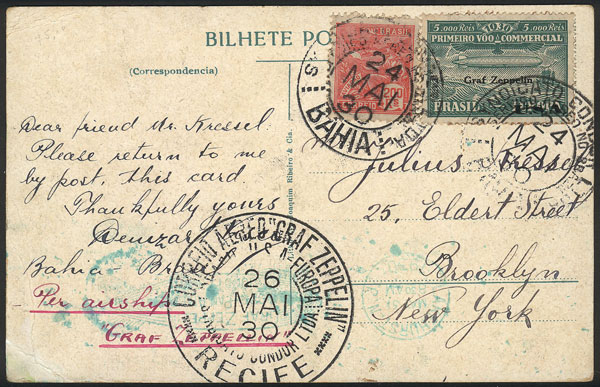 BILHETE PO
(Correspondencia)
BRASIL
200
REIS
5.000 Reis 1930 5.000 Reis
PRIMEIRO VÔO COMMERCIAL
Graf Zeppelin
BRASIL
24
MAI
30
BAHIA
SYNDICATO CONDOR
24
MAI
30
Dear friend Mr. Kressel.
Please return to me
by post, this card.
Thankfully yours
Bahia - Br
Per airship
"GRAF ZEPPELIN"
Joaquim Ribeiro & Cia.
Julius
25, Eldert Street
Brooklyn
New York
CORREIO AEREO "GRAF ZEPPELIN"
U.S.A. EUROPA
26
MAI
30
SYNDICATO CONDOR LTDA.
RECIFE